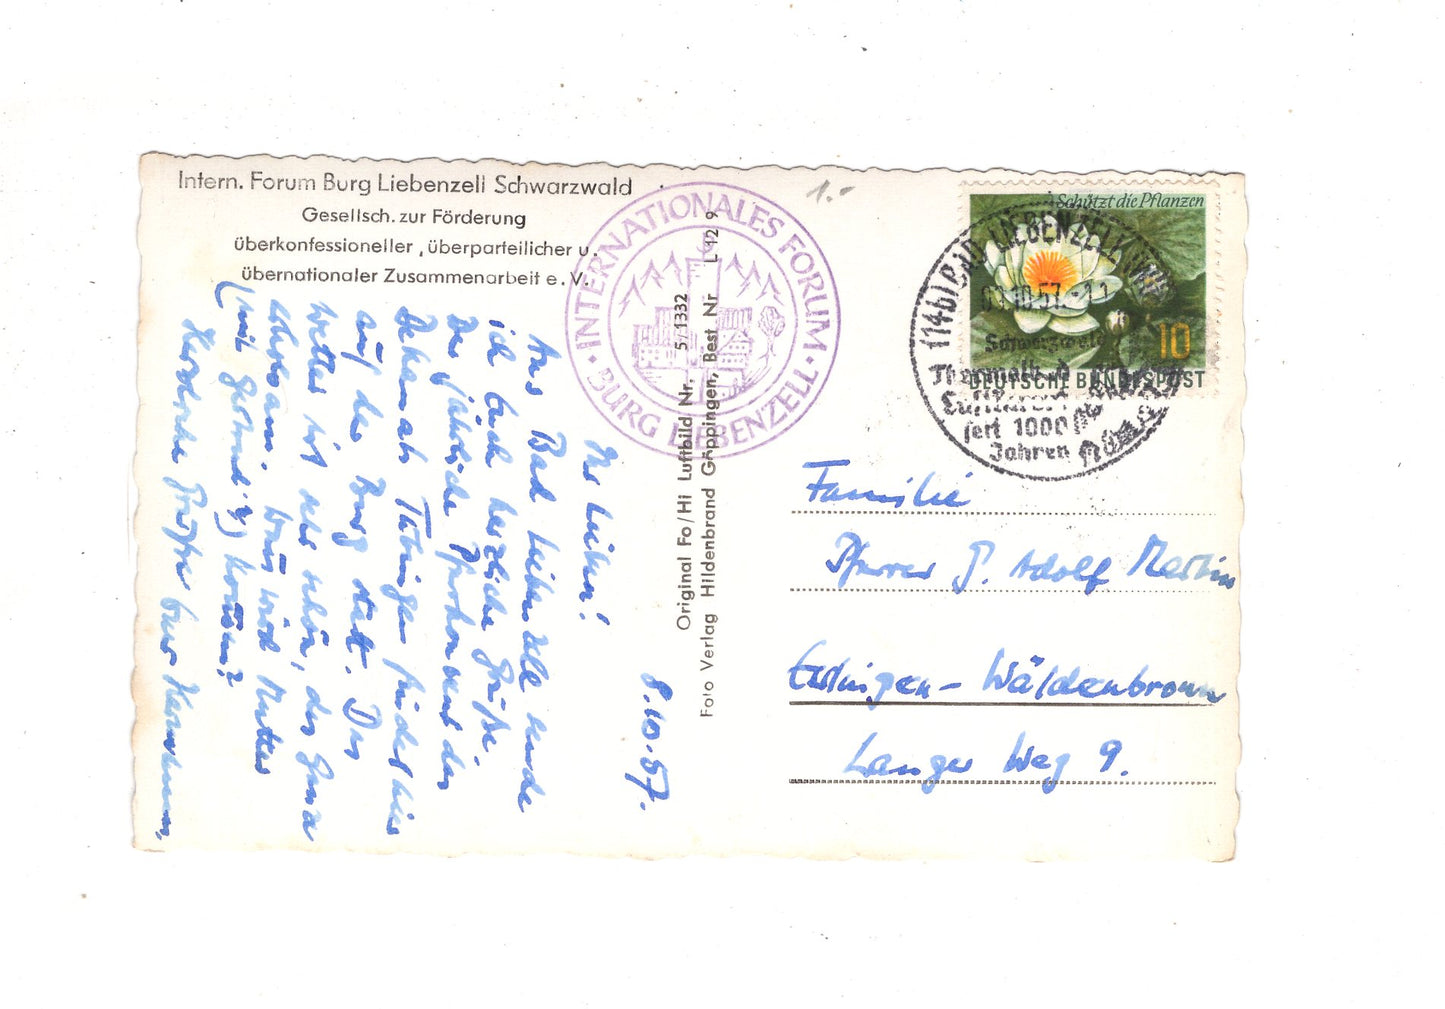 Intern. Forum Burg Liebenzell Schwarzwald
Gesellsch. zur Förderung
überkonfessioneller, überparteilicher u.
übernationaler Zusammenarbeit e. V.
INTERNATIONALES FORUM
BURG LIEBENZELL
1.-
Original Fo/Hi Luftbild Nr. 5/1332
Foto Verlag Hildenbrand Göppingen, Best Nr L 12 9
Schützt die Pflanzen
10
DEUTSCHE BUNDESPOST
(14b) BAD LIEBENZELL
10.57
Schwarzwald
seit 1000
Jahren
8.10.57.
Ihr Lieben!
Aus Bad Liebenzell sende
ich Euch herzliche Grüße.
Der jährliche
Dekanats Tübingen findet hier
auf der Burg statt. Das
Wetter ist sehr schön, das Ganze
erholsam. Wann wird Mutter
(mit Gertrud?) kommen?
Herzliche Grüße Euer Hermann.
Familie
Pfarrer G. Adolf Martin
Esslingen – Wäldenbronn
Langer Weg 9.